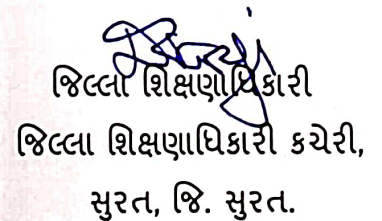 જિલ્લા શિક્ષણાધિકારી
જિલ્લા શિક્ષણાધિકારી કચેરી,
સુરત, જિ. સુરત.